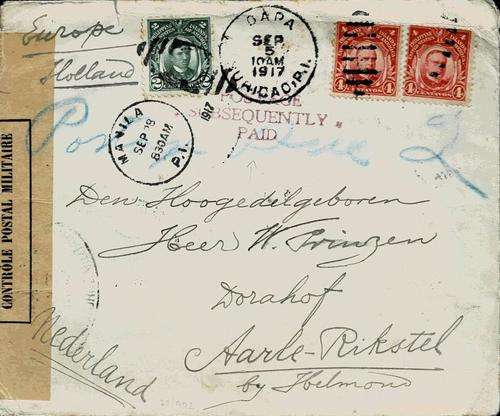 Europe
Holland
DAPA
SEP
5
10AM
1917
SURIGAO, P.I.
2
2
4
4
4
4
POSTAGE
"SUBSEQUENTLY"
PAID
MANILA
SEP 28
830AM
1917
P.I.
Postage due 2
CONTRÔLE POSTAL MILITAIRE
Den Hoogedelgeboren
Heer W. Prinzen
Dorahof
Aarle-Rikstel
by Helmond
Nederland